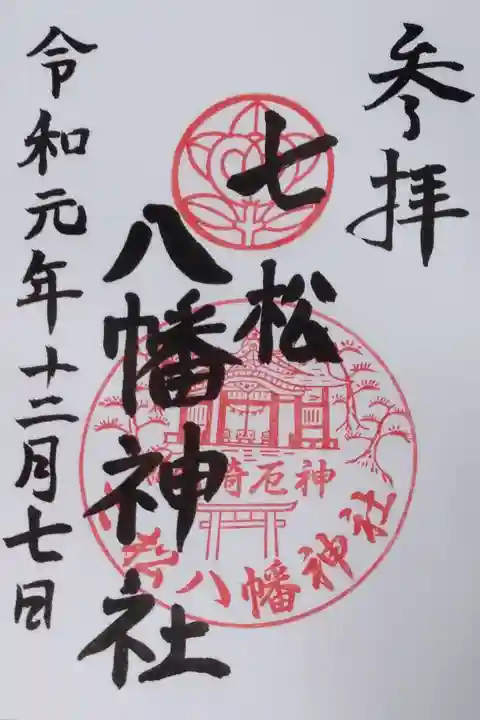 参拝
七松
八幡神社
令和元年十二月七日
崎厄神
松八幡神社